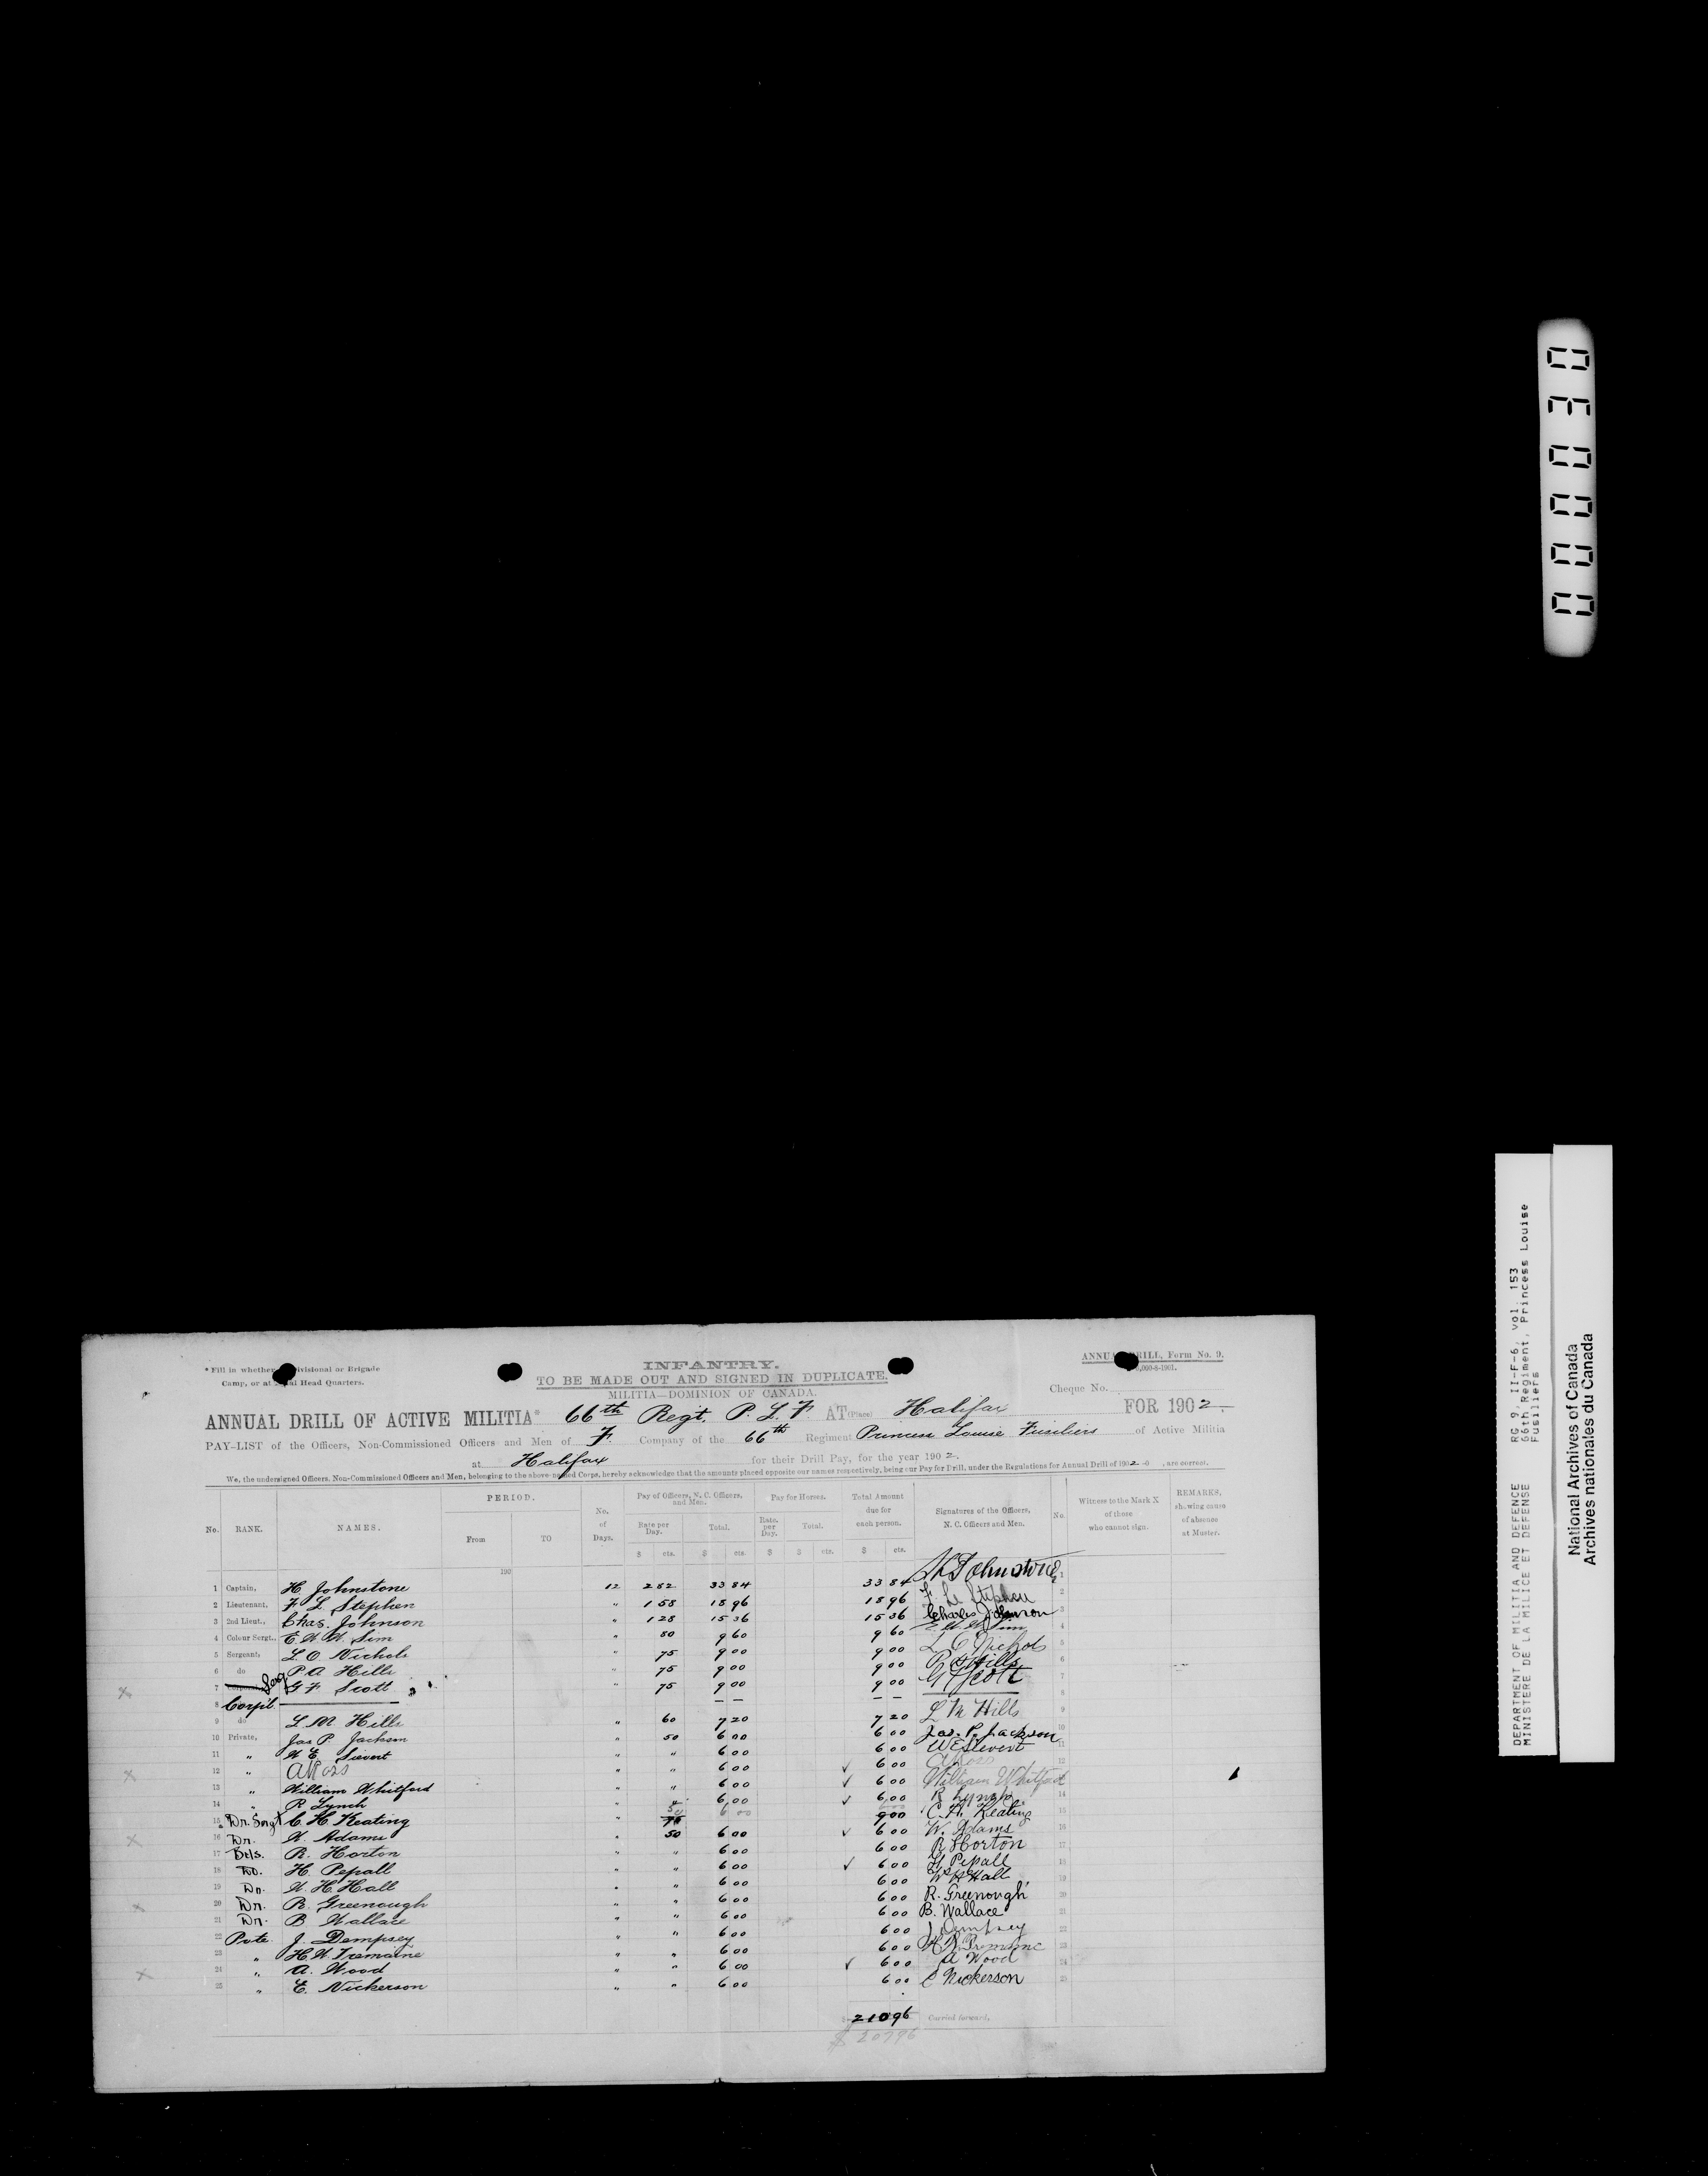 * Fill in whether Divisional or Brigade
Camp, or at Local Head Quarters.
INFANTRY.
TO BE MADE OUT AND SIGNED IN DUPLICATE.
MILITIA—DOMINION OF CANADA.
ANNUAL DRILL, Form No. 9.
Cheque No.
ANNUAL DRILL OF ACTIVE MILITIA* 66th Regt. P. L. F. AT (Place) Halifax FOR 1902.
PAY-LIST of the Officers, Non-Commissioned Officers and Men of F. Company of the 66th Regiment Princess Louise Fusiliers of Active Militia
at Halifax for their Drill Pay, for the year 1902.
We, the undersigned Officers, Non-Commissioned Officers and Men, belonging to the above-named Corps, hereby acknowledge that the amounts placed opposite our names respectively, being our Pay for Drill, under the Regulations for Annual Drill of 1902-0 , are correct.
No. RANK. NAMES. PERIOD. From TO No. of Days. Pay of Officers, N. C. Officers, and Men. Rate per Day. Total. Pay for Horses. Rate per Day. Total. Total Amount due for each person. Signatures of the Officers, N. C. Officers and Men. No. Witness to the Mark X of those who cannot sign. REMARKS, showing cause of absence at Muster.
$ cts. $ cts. $ $ cts. $ cts.
190
1 Captain, H. Johnstone 12 2 82 33 84 33 84 H Johnstone 1
2 Lieutenant, F. L. Stephen " 1 58 18 96 18 96 F. L. Stephen 2
3 2nd Lieut., Chas. Johnson " 1 28 15 36 15 36 Charles Johnson 3
4 Colour Sergt., E. W. W. Sim " 80 9 60 9 60 E. W. W. Sim 4
5 Sergeant, L. O. Nichols " 75 9 00 9 00 L O Nichols 5
6 do P. A. Hills " 75 9 00 9 00 P A Hills 6
7 Corporal, Serg G. F. Scott " 75 9 00 9 00 G F Scott 7
8 Corpl. — — — — 8
9 do L. M. Hills " 60 7 20 7 20 L M Hills 9
10 Private, Jas P. Jackson " 50 6 00 6 00 Jas. P. Jackson 10
11 " W E Sievert " " 6 00 6 00 W E Sievert 11
12 " A Ross " " 6 00 ✓ 6 00 A Ross 12
13 " William Whitford " " 6 00 ✓ 6 00 William Whitford
14 " R Lynch " " 6 00 ✓ 6 00 R Lynch 14
15 Dr. Sergt C. H. Keating " 75 50 6 00 9 00 C. H. Keating 15
16 Dr. W. Adams " 50 6 00 ✓ 6 00 W. Adams 16
17 Bds. R. Horton " " 6 00 6 00 R Horton 17
18 Do. H. Pepall " " 6 00 ✓ 6 00 H Pepall 18
19 Dr. W. H. Hall " " 6 00 6 00 W H Hall 19
20 Dr. R. Greenough " " 6 00 6 00 R. Greenough 20
21 Dr. B Wallace " " 6 00 6 00 B. Wallace 21
22 Pvte. J. Dempsey " " 6 00 6 00 J Dempsey 22
23 " H. W. Tremaine " " 6 00 6 00 H W Tremaine 23
24 " A. Wood " " 6 00 ✓ 6 00 A Wood 24
25 " E. Nickerson " " 6 00 6 00 E Nickerson 25
210 96 Carried forward,
$ 207 96
000030
DEPARTMENT OF MILITIA AND DEFENCE RG 9, II-F-6, vol. 153
MINISTERE DE LA MILICE ET DEFENSE 66th Regiment, Princess Louise
Fusiliers
National Archives of Canada
Archives nationales du Canada